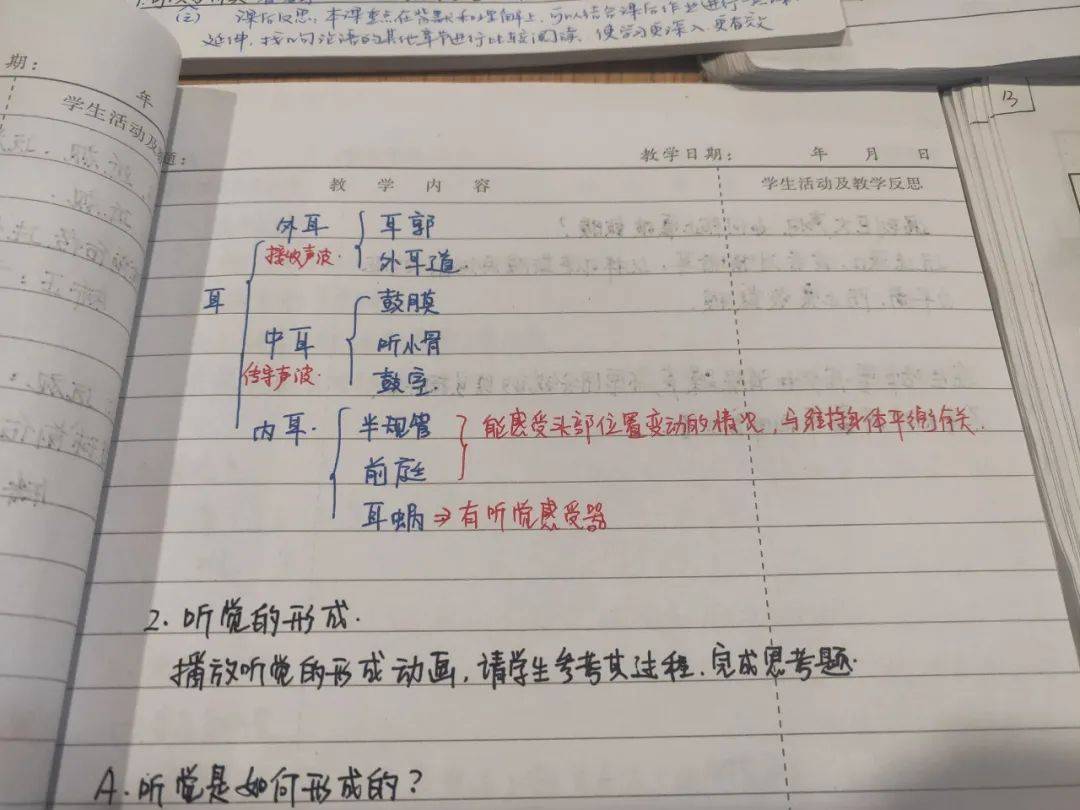 (2) 课后反思:本课重点在背默和理解上,可以结合课后作业进行一
延伸,找几句论语的其他章节进行比较阅读,使学习更深入更有效
期:
年
学生活动及
13
题:
教学日期: 年 月 日
教 学 内 容
学生活动及教学反思
耳
外耳 耳郭
接收声波. 外耳道
鼓膜
中耳 听小骨
传导声波. 鼓室
内耳. 半规管 能感受头部位置变动的情况,与维持身体平衡有关.
前庭
耳蜗 → 有听觉感受器
2. 听觉的形成.
播放听觉的形成动画,请学生参考其过程.完成思考题.
A. 听觉是如何形成的?